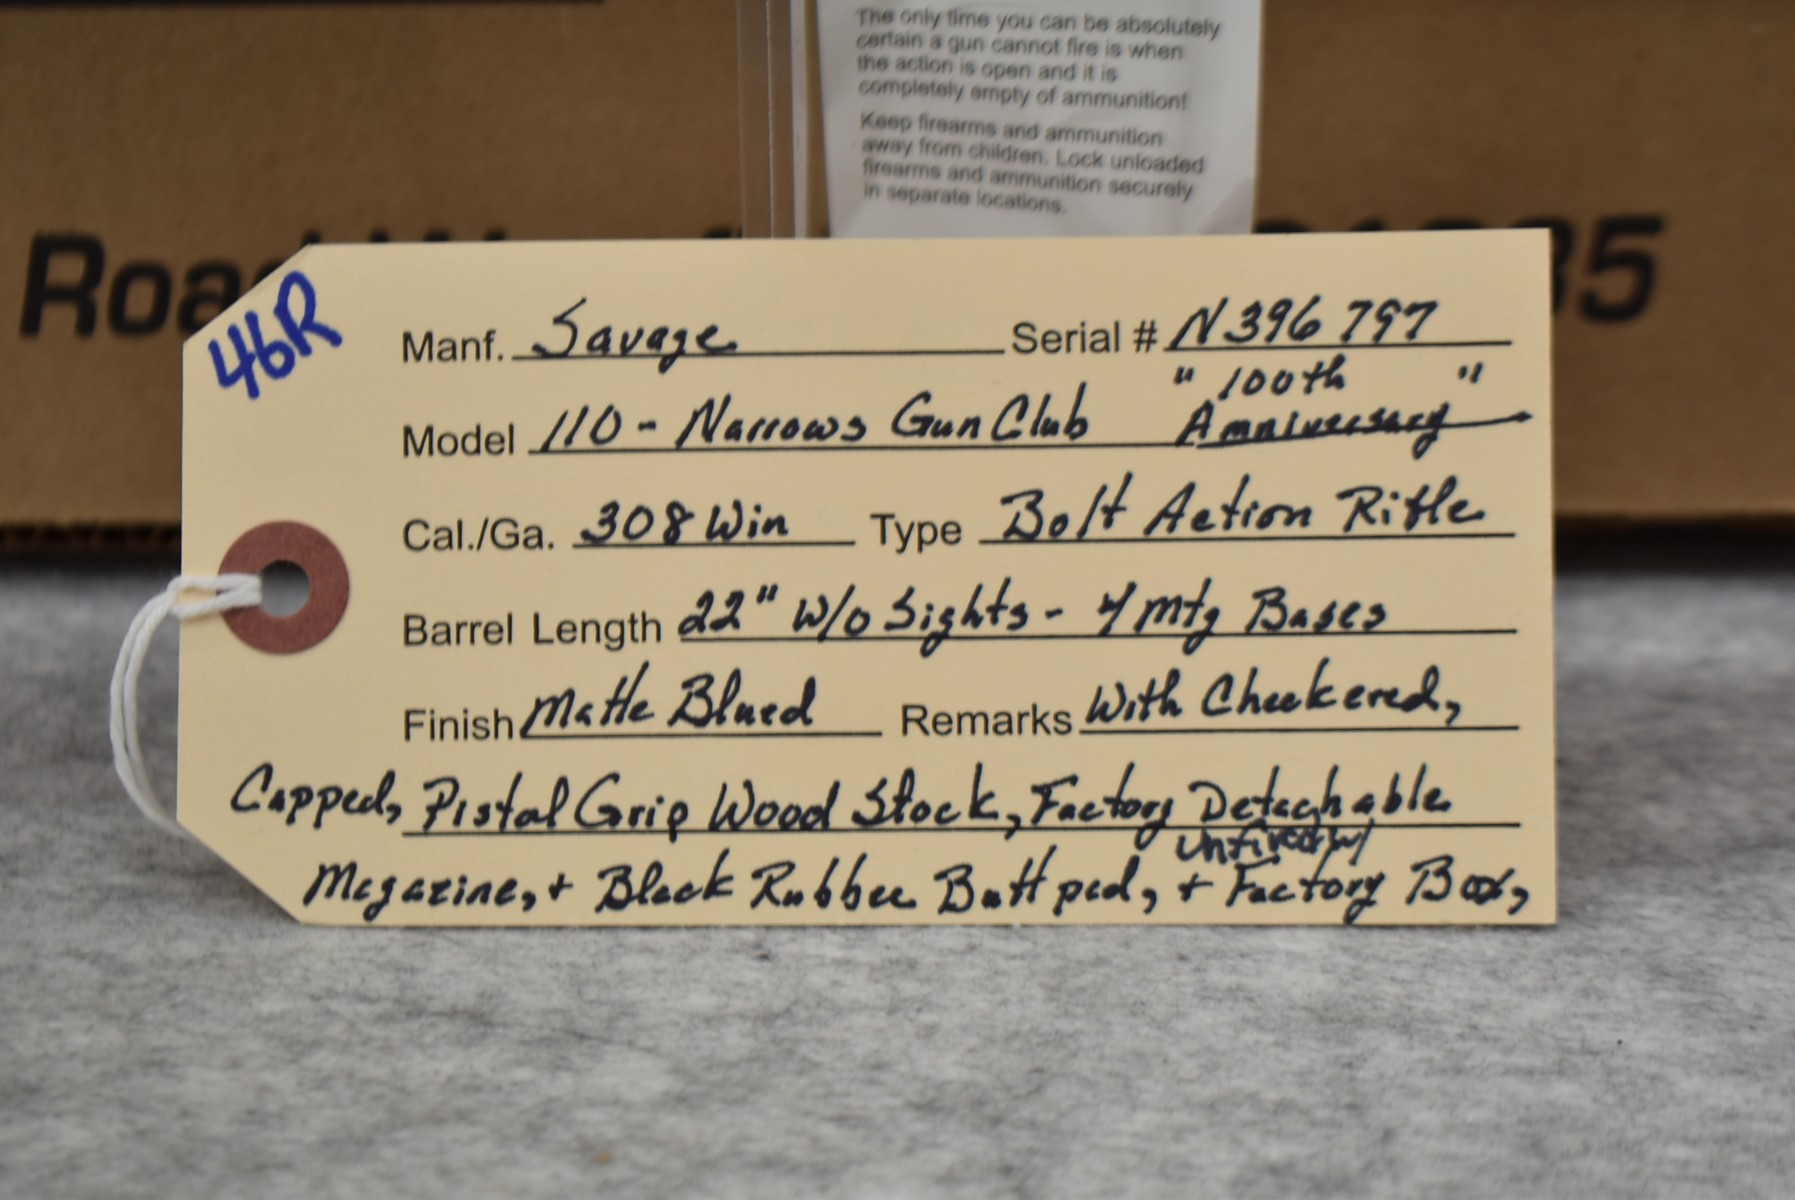 The only time you can be absolutely
certain a gun cannot fire is when
the action is open and it is
completely empty of ammunition!
Keep firearms and ammunition
away from children. Lock unloaded
firearms and ammunition securely
in separate locations.
46R
Manf. Savage Serial # N396797
Model 110 - Narrows Gun Club "100th Anniversary"
Cal./Ga. 308 Win Type Bolt Action Rifle
Barrel Length 22" W/o Sights - 4 Mtg Bases
Finish Matte Blued Remarks With Checkered,
Capped, Pistal Grip Wood Stock, Factory Detachable
unfired w/
Magazine, + Black Rubber Butt pad, + Factory Box,